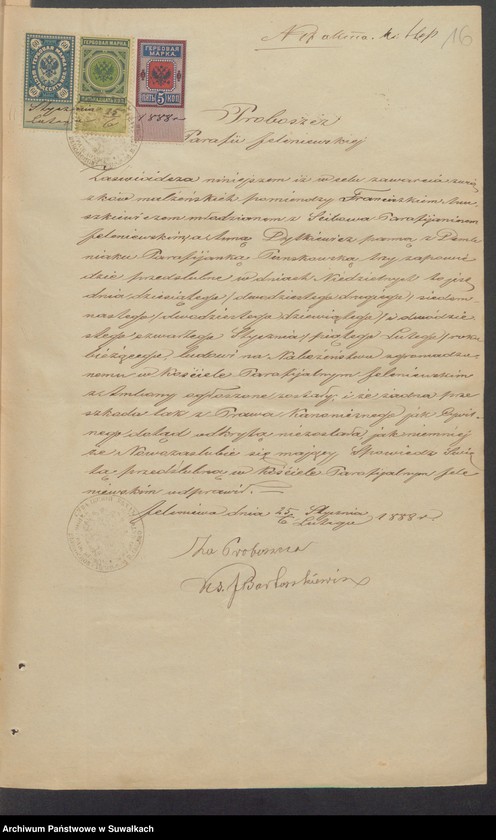 16
ГЕРБОВАЯ МАРКА
ГЕРБОВАЯ МАРКА
ГЕРБОВАЯ МАРКА
ПЯТЬ 5 КОП
Stycznia 25
Lutego 6
1888 r
Proboszcz
Parafii Jeleniewskiej
Zaświadcza niniejszem iż w celu zawarcia zwią
zków małżeńskich pomiendzy Franciszkiem
młodzianem z Ścibowa Parafijaninem
Jeleniewskim, a Anną Dytkiewicz panną z
Parafijanką Pańskowską trzy zapowie
dzie przedślubne w dniach Niedzielnych to jest
dnia dziesiątego / dwudziestego drugiego / siedem
nastego / dwudziestego dziewiątego / i dwudzie
stego czwartego Stycznia / piątego Lutego / roku
bieżącego ludowi na Nabożeństwo zgromadzo
nemu w Kościele Parafijalnym Jeleniewskim
z Ambony ogłoszone zostały i że żadna prze
szkoda tak z Prawa Kanonicznego jak Cywil
nego dotąd odkrytą niezostała, jak niemniej
że Nowozaślubić się mający Spowiedź Świę
tą przedślubną w Kościele Parafijalnym Jele
niewskim odprawił.
Jeleniewo dnia 25/6 Stycznia/Lutego 1888 r
Za Proboszcza
Ks. J Bartoszkiewicz
Archiwum Państwowe w Suwałkach